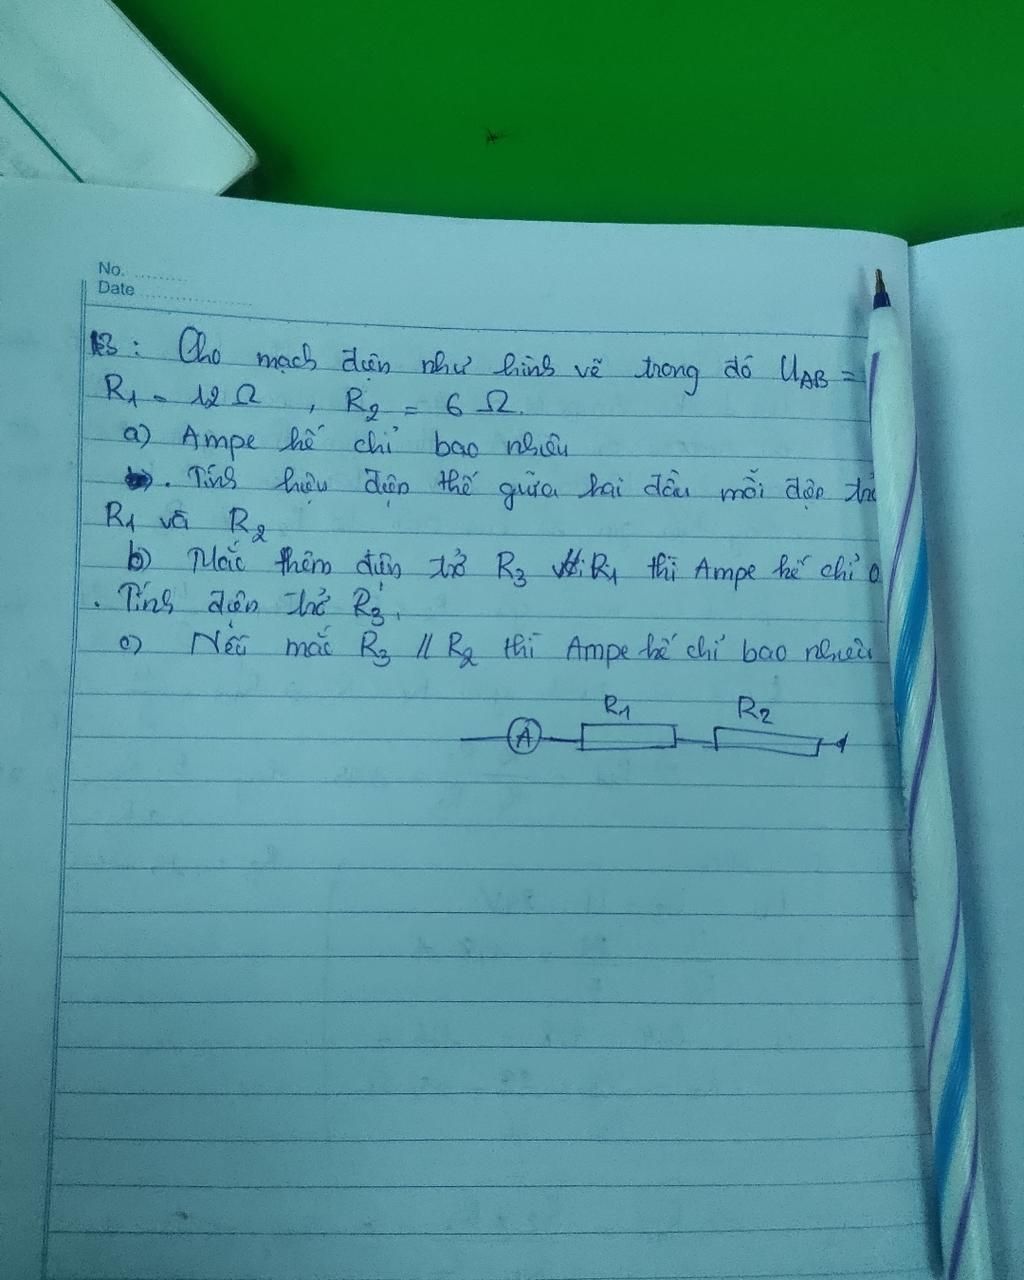 No. ........
Date ................
B3: Cho mạch điện như hình vẽ trong đó UAB =
R1 = 12 Ω , R2 = 6 Ω.
a) Ampe kế chỉ bao nhiêu
. Tính hiệu điện thế giữa hai đầu mỗi điện trở
R1 và R2
b) Mắc thêm điện trở R3 // R1 thì Ampe kế chỉ 0
. Tính điện trở R3.
c) Nếu mắc R3 // R2 thì Ampe kế chỉ bao nhiêu
R1 R2
A